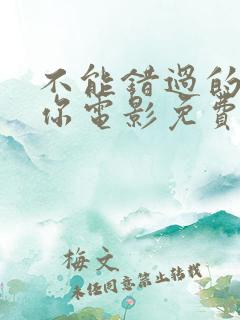 不能错过的
你电影免费
梅文
未经同意禁止转载